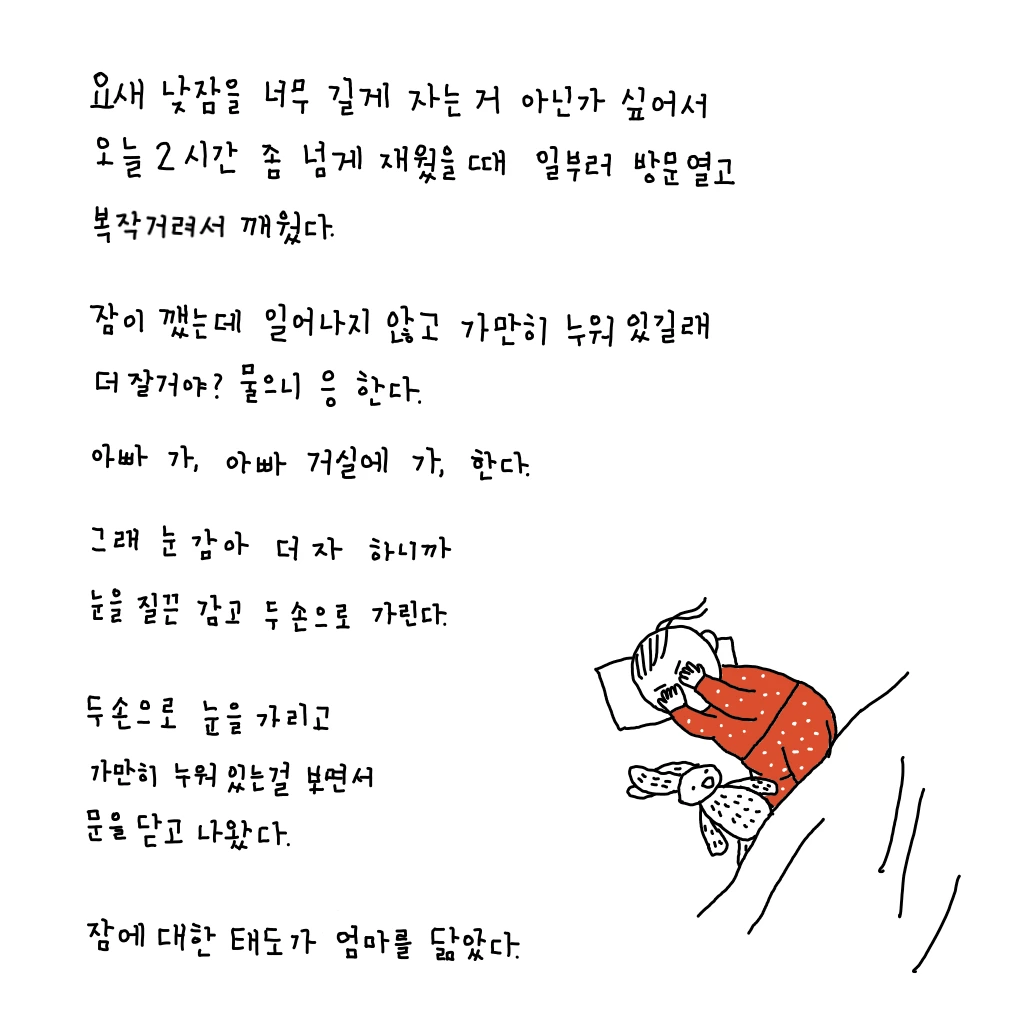 요새 낮잠을 너무 길게 자는 거 아닌가 싶어서
오늘 2시간 좀 넘게 재웠을 때 일부러 방문 열고
복작거려서 깨웠다.
잠이 깼는데 일어나지 않고 가만히 누워 있길래
더 잘거야? 물으니 응 한다.
아빠 가, 아빠 거실에 가, 한다.
그래 눈 감아 더 자 하니까
눈을 질끈 감고 두 손으로 가린다.
두 손으로 눈을 가리고
가만히 누워 있는걸 보면서
문을 닫고 나왔다.
잠에 대한 태도가 엄마를 닮았다.